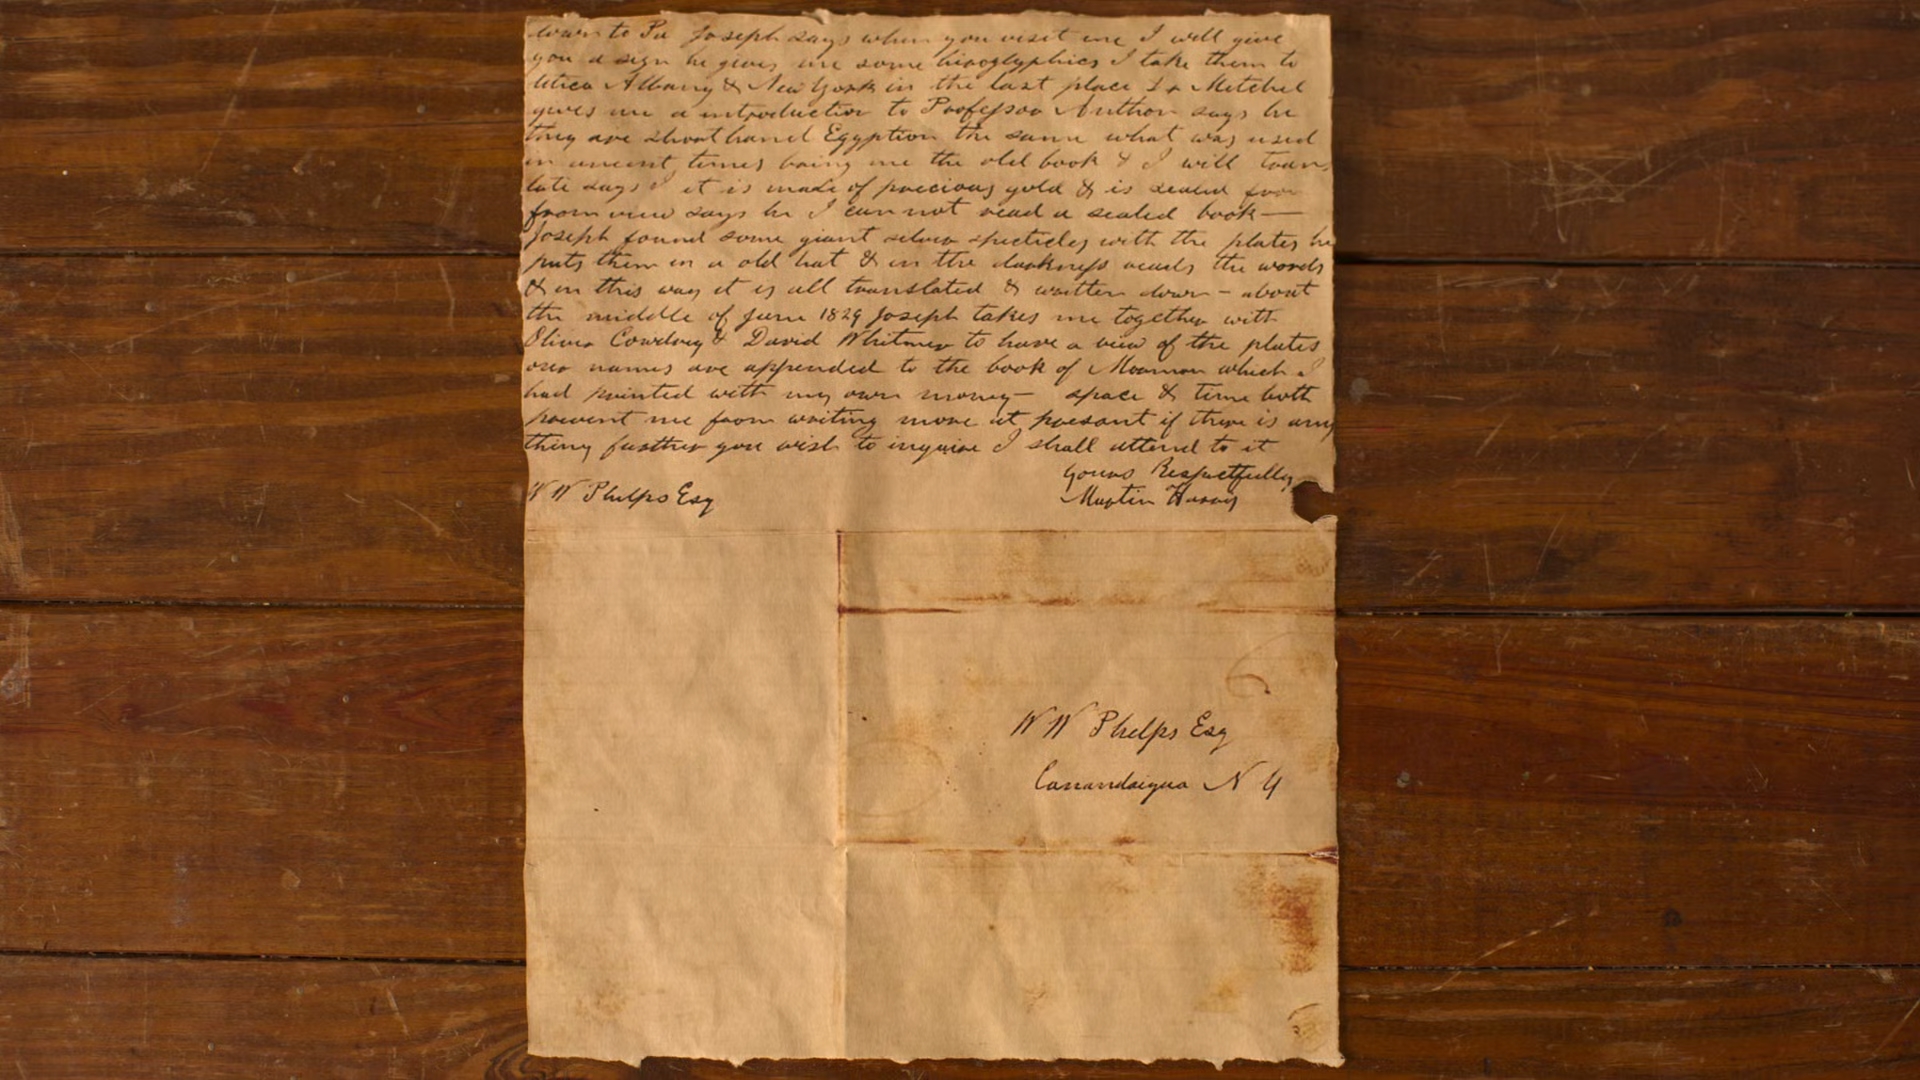 down to Pa Joseph says when you visit me I will give
you a sign he gives me some hiroglyphics I take them to
Utica Albany & New York in the last place Dr Mitchel
gives me a introduction to Professor Anthon says he
they are short hand Egyption the same what was used
in ancient times bring me the old book & I will trans
late says I it is made of precious gold & is sealed from
from view says he I can not read a sealed book—
Joseph found some giant silver specticles with the plates he
puts them in a old hat & in the darkness reads the words
& in this way it is all translated & written down – about
the middle of June 1829 Joseph takes me together with
Oliver Cowdrey & David Whitmer to have a view of the plates
our names are appended to the book of Mormon which I
had printed with my own money— space & time both
prevent me from writing more at presant if there is any
thing further you wish to inquire I shall attend to it
Yours Respectfully
Martin Harris
W W Phelps Esq
6
W W Phelps Esq
Canandaigua N Y